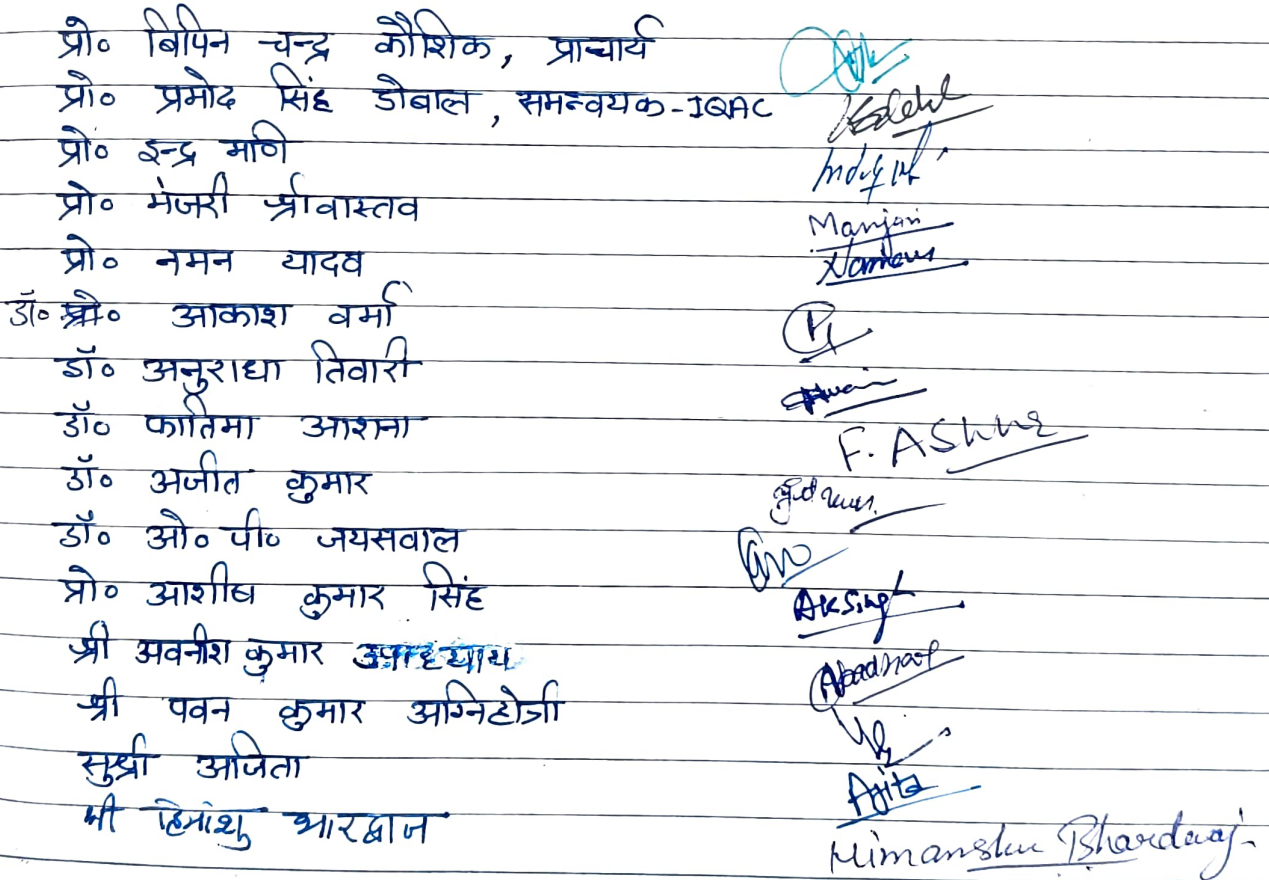 प्रो० बिपिन चन्द्र कौशिक, प्राचार्य
प्रो० प्रमोद सिंह डोबाल, समन्वयक-IQAC
प्रो० इन्द्र मणि
प्रो० मंजरी श्रीवास्तव Manjari
प्रो० नमन यादव
डॉ० आकाश वर्मा
डॉ० अनुराधा तिवारी
डॉ० फातिमा आशना F. AShna
डॉ० अजीत कुमार
डॉ० ओ० पी० जयसवाल
प्रो० आशीष कुमार सिंह AKSingh
श्री अवनीश कुमार उपाध्याय
श्री पवन कुमार अग्निहोत्री
सुश्री अजिता Ajita
श्री हिमांशु भारद्वाज Himanshu Bhardwaj